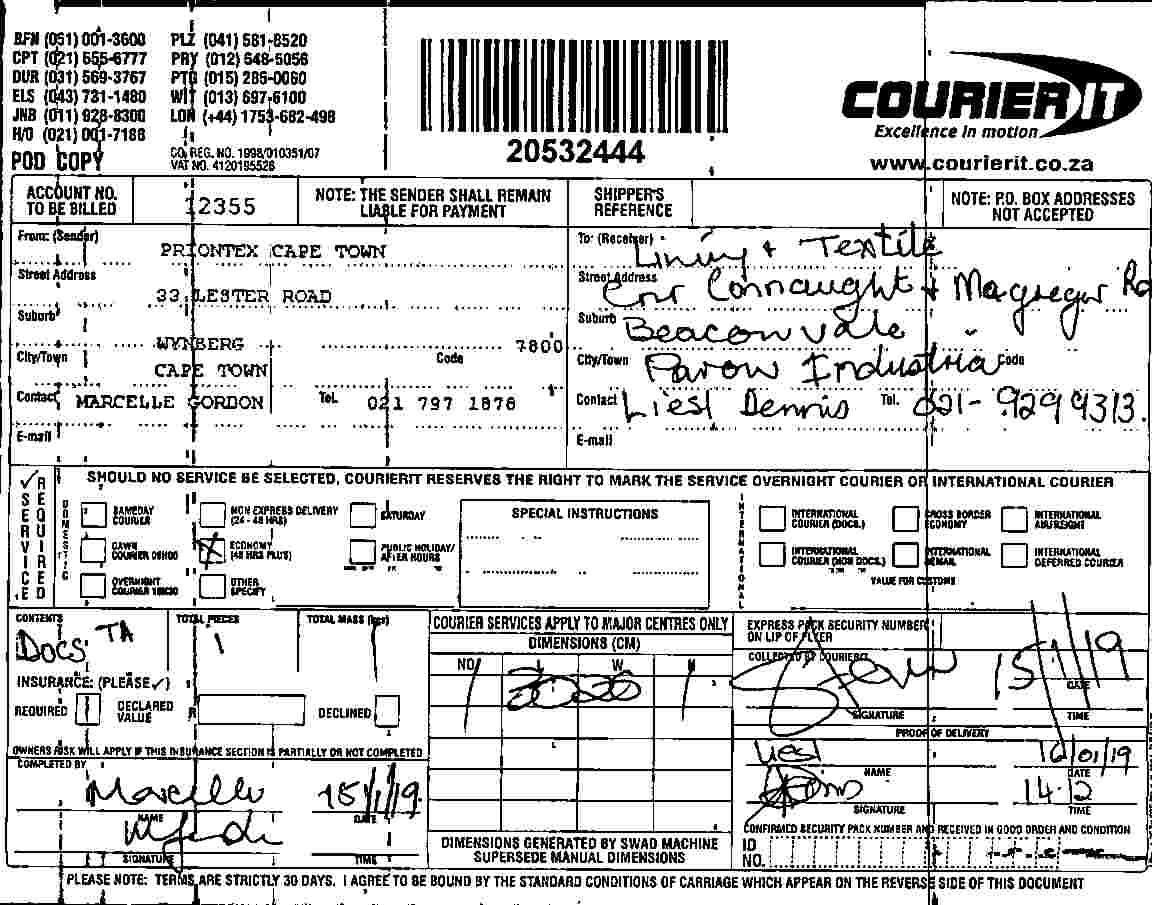 BFN (051) 001-3600 PLZ (041) 581-8520
CPT (021) 555-6777 PRY (012) 548-5056
DUR (031) 569-3767 PTG (015) 285-0060
ELS (043) 731-1480 WIT (013) 697-6100
JNB (011) 928-8300 LON (+44) 1753-682-498
H/O (021) 001-7186
POD COPY
CO. REG. NO. 1998/010351/07
VAT NO. 4120195526
20532444
COURIER IT
Excellence in motion
www.courierit.co.za
ACCOUNT NO. TO BE BILLED 12355
NOTE: THE SENDER SHALL REMAIN LIABLE FOR PAYMENT
SHIPPER'S REFERENCE
NOTE: P.O. BOX ADDRESSES NOT ACCEPTED
From: (Sender) PRIONTEX CAPE TOWN
Street Address 33 LESTER ROAD
Suburb WYNBERG
City/Town CAPE TOWN Code 7800
Contact MARCELLE GORDON Tel. 021 797 1878
E-mail
To: (Receiver) Lining + Textile
Street Address Cnr Connaught + Macgregor Rd
Suburb Beaconvale
City/Town Parow Industria Code
Contact Liesl Dennis Tel. 021-9299313.
E-mail
SERVICE REQUIRED
SHOULD NO SERVICE BE SELECTED, COURIERIT RESERVES THE RIGHT TO MARK THE SERVICE OVERNIGHT COURIER OR INTERNATIONAL COURIER
DOMESTIC
SAMEDAY COURIER
NON EXPRESS DELIVERY (24 - 48 HRS)
SATURDAY
DAWN COURIER 09H00
ECONOMY (48 HRS PLUS)
PUBLIC HOLIDAY/ AFTER HOURS
OVERNIGHT COURIER 10H30
OTHER SPECIFY
SPECIAL INSTRUCTIONS
INTERNATIONAL
INTERNATIONAL COURIER (DOCS.)
CROSS BORDER ECONOMY
INTERNATIONAL AIRFREIGHT
INTERNATIONAL COURIER (NON DOCS.)
INTERNATIONAL
INTERNATIONAL DEFERRED COURIER
VALUE FOR CUSTOMS
CONTENTS Docs TA
TOTAL PIECES 1
TOTAL MASS (kgs) 1
INSURANCE: (PLEASE ✓)
REQUIRED DECLARED VALUE R DECLINED
OWNERS RISK WILL APPLY IF THIS INSURANCE SECTION IS PARTIALLY OR NOT COMPLETED
COMPLETED BY
Marcelle 15/1/19
NAME DATE
SIGNATURE TIME
COURIER SERVICES APPLY TO MAJOR CENTRES ONLY
DIMENSIONS (CM)
NO. L W H
1
DIMENSIONS GENERATED BY SWAD MACHINE SUPERSEDE MANUAL DIMENSIONS
EXPRESS PACK SECURITY NUMBER ON LIP OF FLYER
COLLECTED BY COURIERIT
15/1/19
DATE
SIGNATURE TIME
PROOF OF DELIVERY
Liesl 16/01/19
NAME DATE
14.2
SIGNATURE TIME
CONFIRMED SECURITY PACK NUMBER AND RECEIVED IN GOOD ORDER AND CONDITION
ID NO.
PLEASE NOTE: TERMS ARE STRICTLY 30 DAYS. I AGREE TO BE BOUND BY THE STANDARD CONDITIONS OF CARRIAGE WHICH APPEAR ON THE REVERSE SIDE OF THIS DOCUMENT